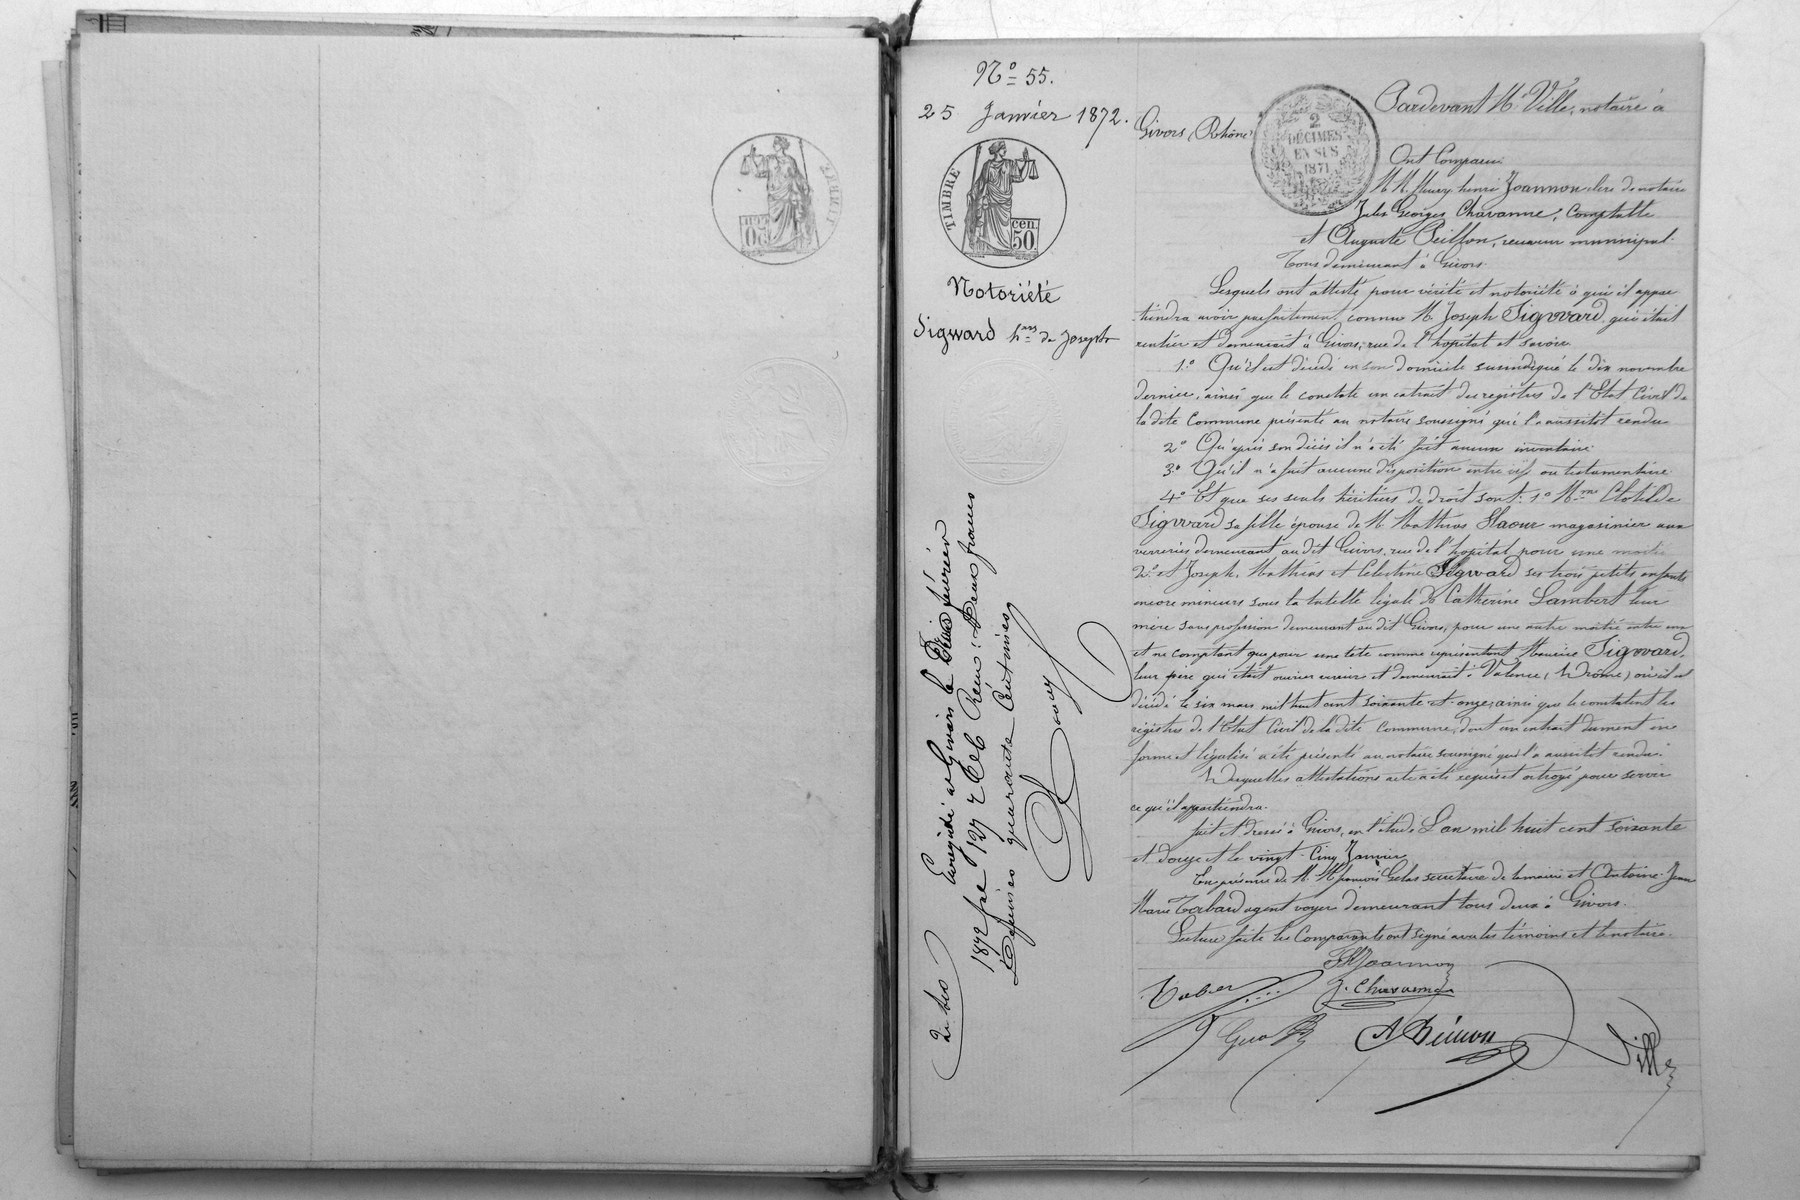 N° 55.
25 Janvier 1872.
TIMBRE
cen.
50.
Notoriété
Sigward h.ers de Joseph
2 DÉCIMES EN SUS 1871
Pardevant Me Ville, notaire à
Givors (Rhône)
Ont Comparu
M.M. fleury henri Joannon clerc de notaire
Jules Georges Chavanne, Comptable
et Auguste , receveur municipal.
Tous demeurant à Givors.
Lesquels ont attesté pour vérité et notoriété à qui il appar
tiendra avoir parfaitement connu M. Joseph Sigward, qui était
rentier et demeurait à Givors, rue de l'hopital et savoir
1.° Qu'il est décédé en son domicile susindiqué le dix novembre
dernier, ainsi que le constate un extrait des registres de l'Etat Civil de
la dite Commune présenté au notaire soussigné qui l'a aussitot rendu
2° Qu'après son décès il n'a été fait aucun inventaire.
3.° Qu'il n'a fait aucune disposition entre vifs ou testamentaire.
4° Et que ses seuls héritiers de droit sont: 1° Mme Clotilde
Sigward sa fille épouse de M. Mathias Haour magasinier aux
verreries demeurant au dit Givors, rue de l'hopital pour une moitié
2.° et Joseph, Mathias et Celestine Sigward ses trois petits enfants
encore mineurs sous la tutelle légale de Catherine Lambert leur
mère sans profession demeurant au dit Givors, pour une autre moitié entre eux
et ne comptant que pour une tête comme représentant Maurice Sigward,
leur père qui était ouvrier verrier et demeurait à Valence (Drôme) où il est
décédé le six mars mil huit cent soixante et onze, ainsi que le constatent les
registres de l'Etat Civil de la dite Commune, dont un extrait dument en
forme et légalisé a été présenté au notaire soussigné qui l'a aussitot rendu.
Desquelles attestations acte a été requis et octroyé pour servir
ce qu'il appartiendra.
fait et dressé à Givors, en l'étude L'an mil huit cent soixante
et douze et le vingt Cinq Janvier
En présence de M.M. françois Gelas secrétaire de la mairie et Antoine Jean
Marie Tabard agent voyer demeurant tous deux à Givors.
Lecture faite les Comparants ont signé avec les témoins et le notaire.
Joannon
J. Chavanne
Ville
Enregistré à Givors le Deux février
1872 fol 127 r C 6 Reçu : Deux francs
Décimes quarante Centimes